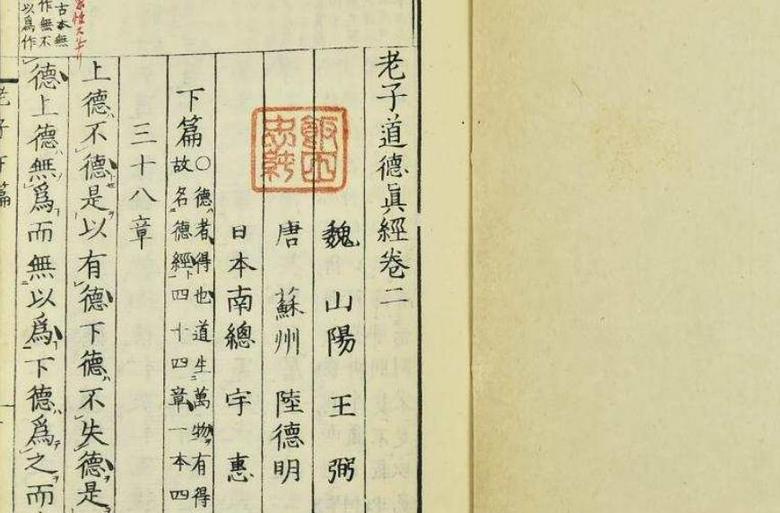 老子道德眞經卷二
魏 山陽 王弼
唐 蘇州 陸德明
日本南總 宇惠
下篇〇德者得也道生萬物有得
故名德經四十四章一本四
三十八章
上德不德是以有德下德不失德是
德上德無爲而無以爲下德爲之而
古本無
作無不
以爲作